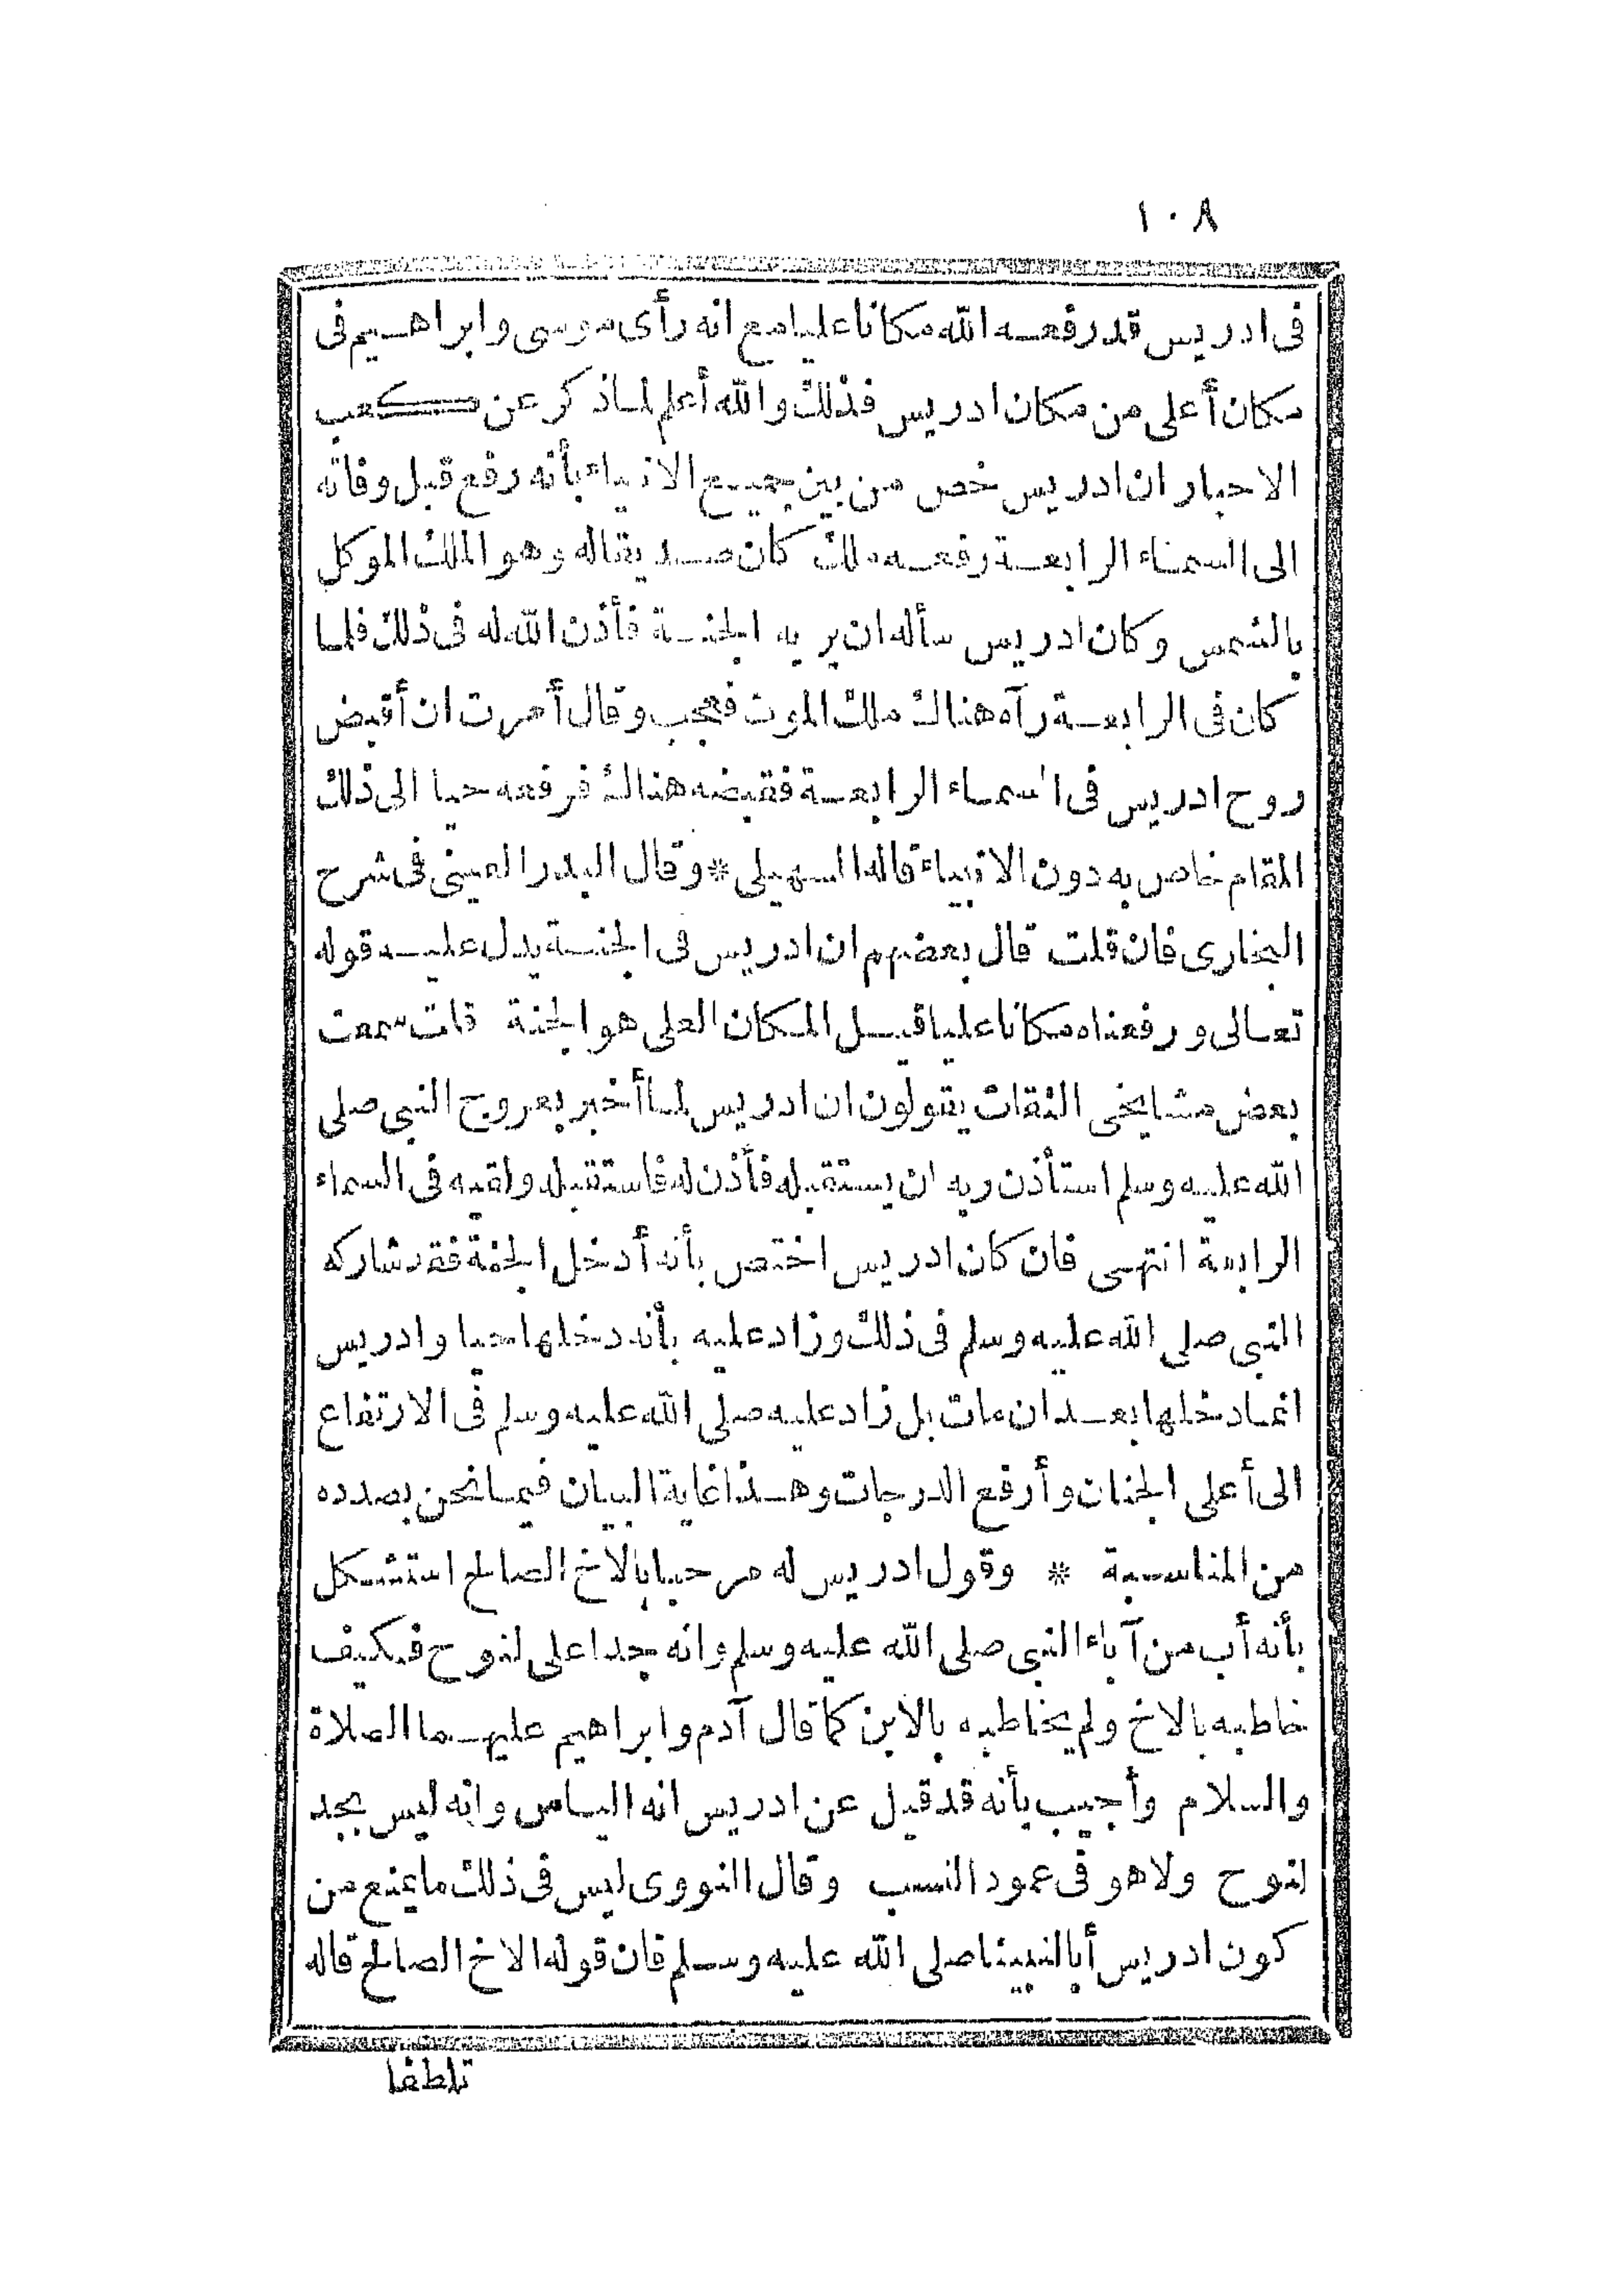 ١٠٨
فى ادريس قد رفعه الله مكانا عليا مع انه رأى موسى وابراهيم فى
مكان أعلى من مكان ادريس فذلك والله أعلم لما ذكر عن كعب
الاحبار ان ادريس خص من بين جميع الانبياء بأنه رفع قبل وفاته
الى السماء الرابعة رفعه ملك كان صديقا له وهو الملك الموكل
بالشمس وكان ادريس سأله ان يريه الجنة فأذن الله له فى ذلك فلما
كان فى الرابعة رآه هناك ملك الموت فعجب وقال أمرت ان أقبض
روح ادريس فى السماء الرابعة فقبضه هناك فرفعه حيا الى ذلك
المقام خاص به دون الانبياء قاله السهيلى * وقال البدر العينى فى شرح
البخارى فان قلت قال بعضهم ان ادريس فى الجنة يدل عليه قوله
تعالى ورفعناه مكانا عليا قيل المكان العلى هو الجنة قلت سمعت
بعض مشايخى الثقات يقولون ان ادريس لما أخبر بعروج النبى صلى
الله عليه وسلم استأذن ربه ان يستقبله فأذن له فاستقبله ولقيه فى السماء
الرابعة انتهى فان كان ادريس اختص بأنه أدخل الجنة فقد شاركه
النبى صلى الله عليه وسلم فى ذلك وزاد عليه بأنه دخلها حيا وادريس
انما دخلها بعد ان مات بل زاد عليه صلى الله عليه وسلم فى الارتفاع
الى أعلى الجنان وأرفع الدرجات وهذا غاية البيان فيما نحن بصدده
من المناسبة * وقول ادريس له مرحبا بالاخ الصالح استشكل
بأنه أب من آباء النبى صلى الله عليه وسلم وانه جد اعلى لنوح فكيف
خاطبه بالاخ ولم يخاطبه بالابن كما قال آدم وابراهيم عليهما الصلاة
والسلام وأجيب بأنه قد قيل عن ادريس انه الياس وانه ليس بجد
لنوح ولا هو فى عمود النسب وقال النووى ليس فى ذلك ما يمنع من
كون ادريس أبا لنبينا صلى الله عليه وسلم فان قوله الاخ الصالح قاله
تلطفا